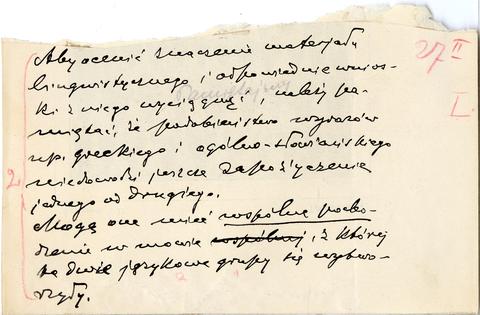 Aby ocenić znaczenie materjału
lingwistycznego i odpowiednie wnios-
ki z niego wyciągnąć, należy pa-
miętać, że podobieństwo wyrazów
np. greckiego i ogólno-słowiańskiego
nie dowodzi jeszcze zapożyczenia
jednego od drugiego.
Mogą one mieć wspólne pocho-
dzenie w mowie wspólnej, z której
te dwie językowe grupy się wytwo-
rzyły.
27 II
I.
2
2